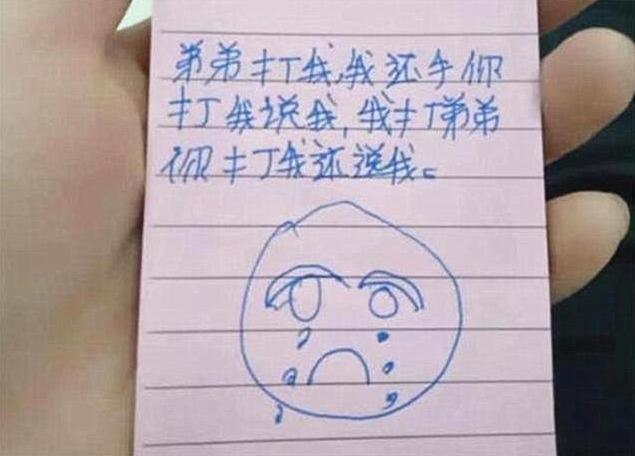 弟弟打我,我还手你
打我说我,我打弟弟
你打我还说我。